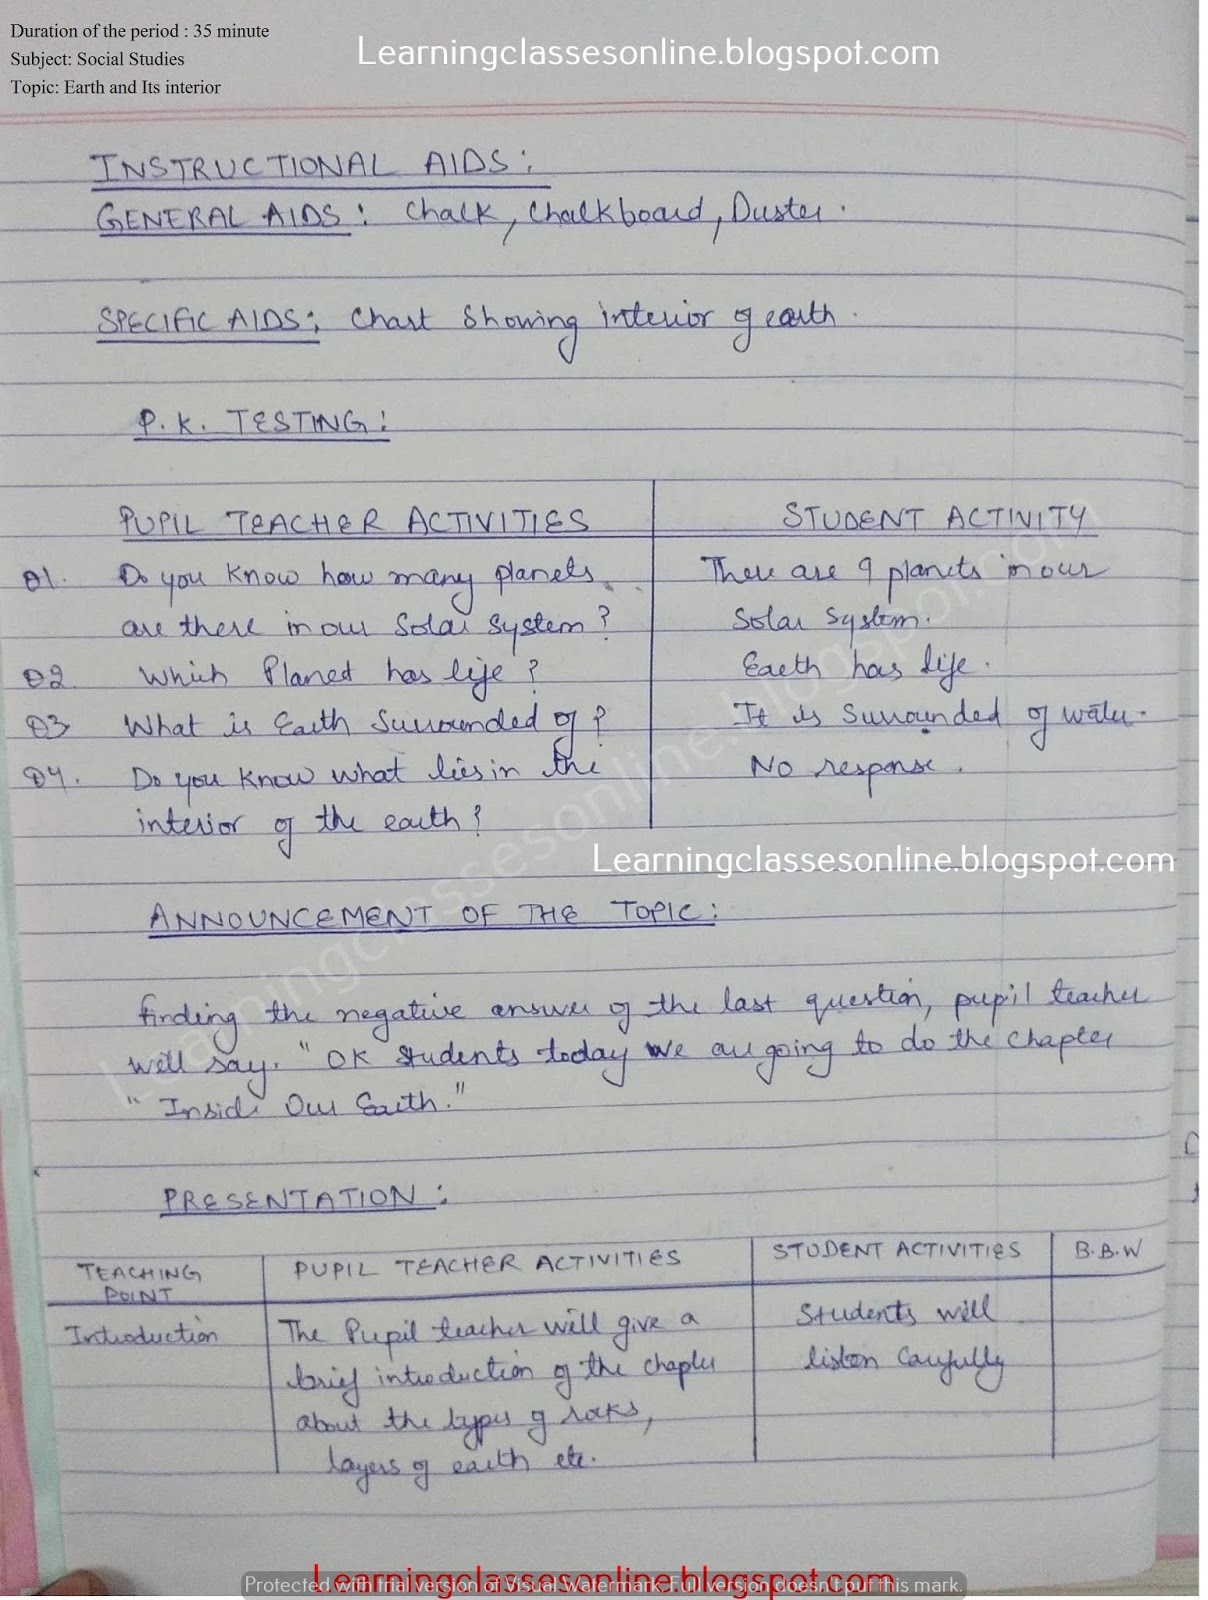 Duration of the period : 35 minute
Subject: Social Studies
Topic: Earth and Its interior
Learningclassesonline.blogspot.com
INSTRUCTIONAL AIDS:
GENERAL AIDS: Chalk, Chalkboard, Duster.
SPECIFIC AIDS: Chart Showing interior of earth.
P.K. TESTING:
PUPIL TEACHER ACTIVITIES
STUDENT ACTIVITY
Q1. Do you know how many planets
are there in our Solar system?
There are 9 planets in our
Solar system.
Q2 Which Planet has life?
Earth has life.
Q3 What is Earth Surrounded of?
It is Surrounded of water.
Q4. Do you know what lies in the
interior of the earth?
No response.
Learningclassesonline.blogspot.com
ANNOUNCEMENT OF THE TOPIC:
finding the negative answer of the last question, pupil teacher
will say. "OK Students today we are going to do the chapter
"Inside Our Earth."
PRESENTATION:
TEACHING
POINT
PUPIL TEACHER ACTIVITIES
STUDENT ACTIVITIES
B.B.W
Introduction
The Pupil teacher will give a
brief introduction of the chapter
about the types of rocks,
layers of earth etc.
Students will
listen Carefully
Learningclassesonline.blogspot.com
Learningclassesonline.blogspot.com
Protected with trial version of Visual Watermark. Full version doesn't put this mark.